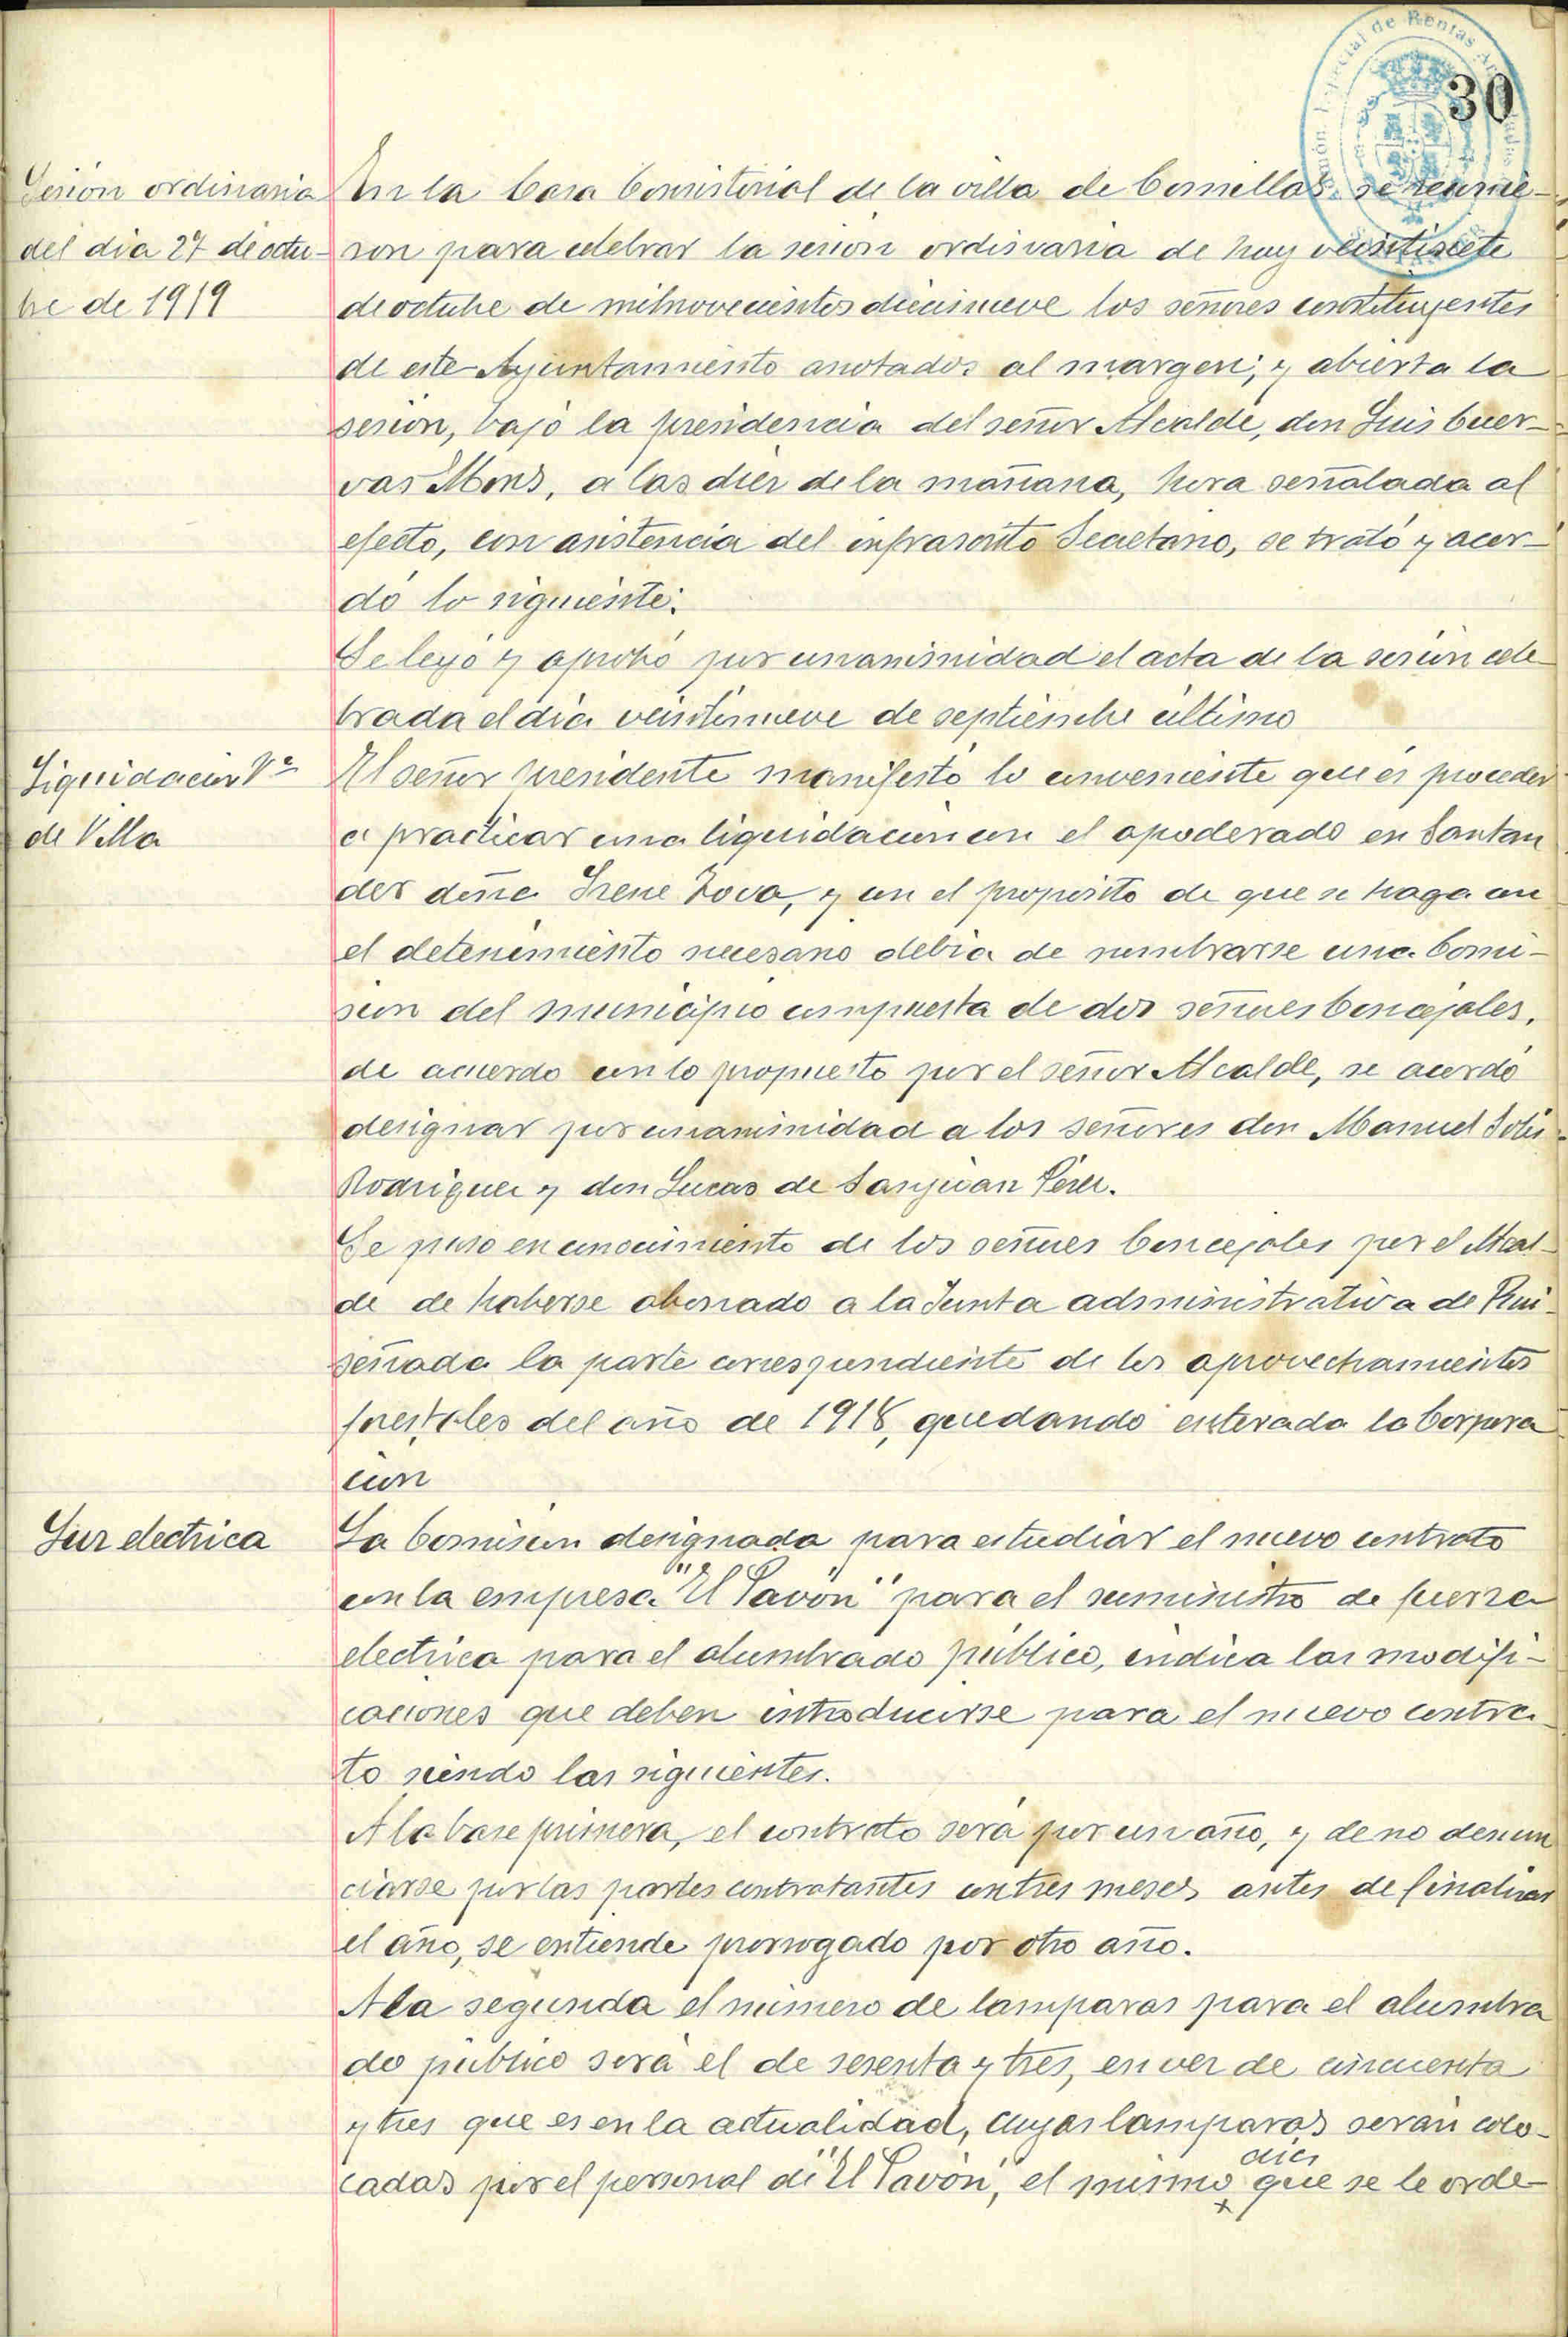 30
Sesión ordinaria
del dia 27 de octu-
bre de 1919
En la Casa Consistorial de la villa de Comillas se reunie-
ron para celebrar la sesion ordinaria de hoy veintisiete
de octubre de mil novecientos diecinueve los señores constituyentes
de este Ayuntamiento anotados al margen; y abierta la
sesion, bajo la presidencia del señor Alcalde, don Luis Cuer-
vas Mons, a las diez de la mañana, hora señalada al
efecto, con asistencia del infrascrito Secretario, se trató y acor-
dó lo siguiente:
Se leyó y aprobó por unanimidad el acta de la sesion cele
brada el dia veintinueve de septiembre último
Liquidacion Vª
de Villa
El señor presidente manifestó lo conveniente que es proceder
a practicar una liquidacion con el apoderado en Santan
der doña Irene Zova, y con el proposito de que se haga con
el detenimiento necesario debia de nombrarse una Comi-
sion del municipio compuesta de dos señores Concejales,
de acuerdo con lo propuesto por el señor Alcalde, se acordó
designar por unanimidad a los señores don Manuel Solis
Rodriguez y don Lucas de Sanjuan Pérez.
Se puso en conocimiento de los señores Concejales por el Alcal-
de de haberse abonado a la Junta administrativa de Rui-
señada la parte correspondiente de los aprovechamientos
forestales del año de 1918, quedando enterada la Corpora
cion
Luz electrica
La Comision designada para estudiar el nuevo contrato
con la empresa "El Pavón" para el suministro de fuerza
electrica para el alumbrado público, indica las modifi-
caciones que deben introducirse para el nuevo contra-
to siendo las siguientes.
A la base primera, el contrato será por un año, y de no denun
ciarse por las partes contratantes con tres meses antes de finalizar
el año, se entiende prorrogado por otro año.
A la segunda el número de lamparas para el alumbra
do publico será el de sesenta y tres, en vez de cincuenta
y tres que es en la actualidad, cuyas lamparas serán colo-
cadas por el personal de "El Pavón", el mismo diez que se le orde-